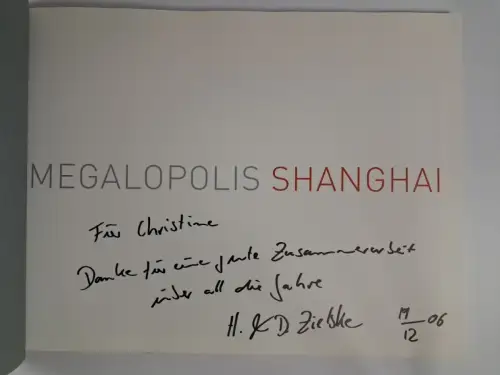 MEGALOPOLIS SHANGHAI
Für Christine
Danke für eine gute Zusammenarbeit
über all die Jahre
H. & D Zielske 19/12 06